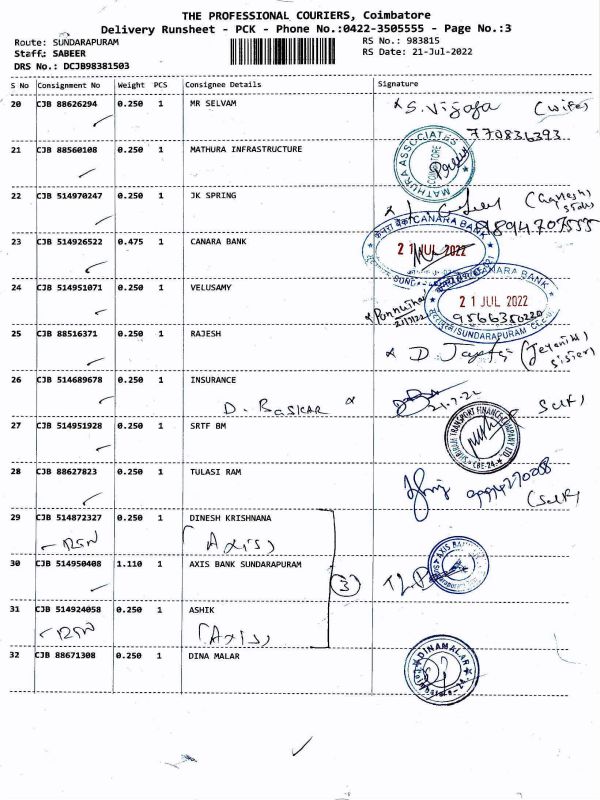 THE PROFESSIONAL COURIERS, Coimbatore
Delivery Runsheet - PCK - Phone No.:0422-3505555 - Page No.:3
Route: SUNDARAPURAM
RS No.: 983815
Staff: SABEER
RS Date: 21-Jul-2022
DRS No.: DCJB98381503
S No Consignment No Weight PCS Consignee Details Signature
20 CJB 88626294 0.250 1 MR SELVAM
S. Vijaya (wife)
770836393
21 CJB 88560108 0.250 1 MATHURA INFRASTRUCTURE
MATHURA ASSOCIATES
COIMBATORE
22 CJB 514970247 0.250 1 JK SPRING
9894707555
23 CJB 514926522 0.475 1 CANARA BANK
CANARA BANK
21 JUL 2022
24 CJB 514951071 0.250 1 VELUSAMY
CANARA BANK
21 JUL 2022
9566350220
SUNDARAPURAM
25 CJB 88516371 0.250 1 RAJESH
D.
sister)
26 CJB 514689678 0.250 1 INSURANCE
D. BASKAR
21.7.22
Self)
27 CJB 514951928 0.250 1 SRTF BM
TRANSPORT FINANCE COMPANY LTD.
CBE-24
28 CJB 88627823 0.250 1 TULASI RAM
(Self)
29 CJB 514872327 0.250 1 DINESH KRISHNANA
(Axis)
30 CJB 514950408 1.110 1 AXIS BANK SUNDARAPURAM
(3)
AXIS BANK
31 CJB 514924058 0.250 1 ASHIK
(Axis)
32 CJB 88671308 0.250 1 DINA MALAR
DINAMALAR